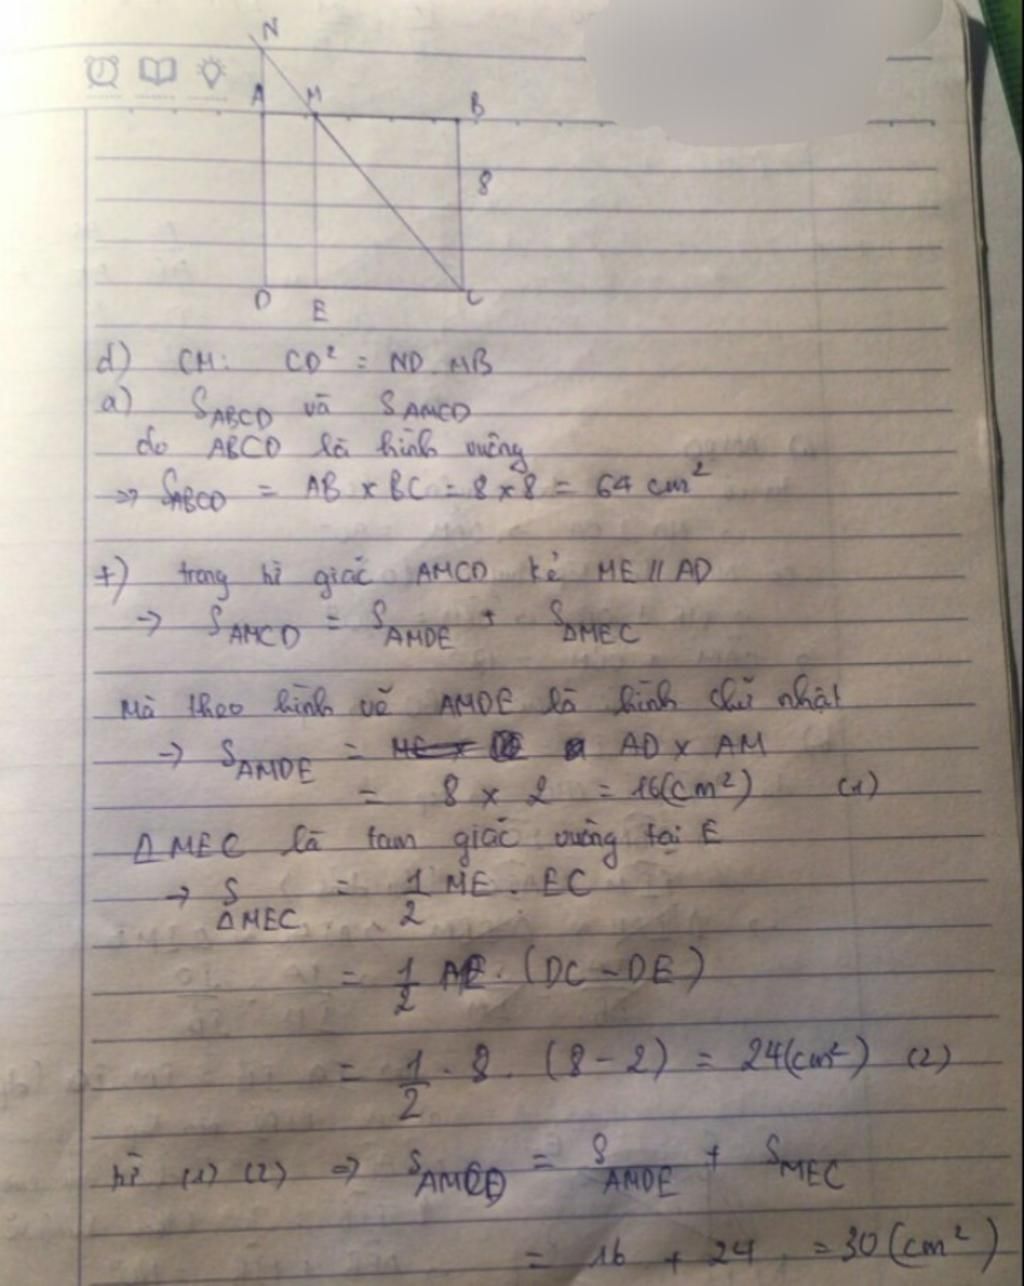 N
A M B
8
D E C
d) CM: CD² = ND. MB
a) S_ABCD và S_AMCD
do ABCD là hình vuông
=> S_ABCD = AB x BC = 8 x 8 = 64 cm²
+) trong tứ giác AMCD kẻ ME // AD
-> S_AMCD = S_AMDE + S_ΔMEC
Mà theo hình vẽ AMDE là hình chữ nhật
-> S_AMDE = AD x AM
= 8 x 2 = 16(cm²) (1)
ΔMEC là tam giác vuông tại E
-> S_ΔMEC = 1/2 ME . EC
= 1/2 . (DC - DE)
= 1/2 . 8 . (8 - 2) = 24(cm²) (2)
từ (1) (2) => S_AMCD = S_AMDE + S_MEC
= 16 + 24 = 30(cm²)